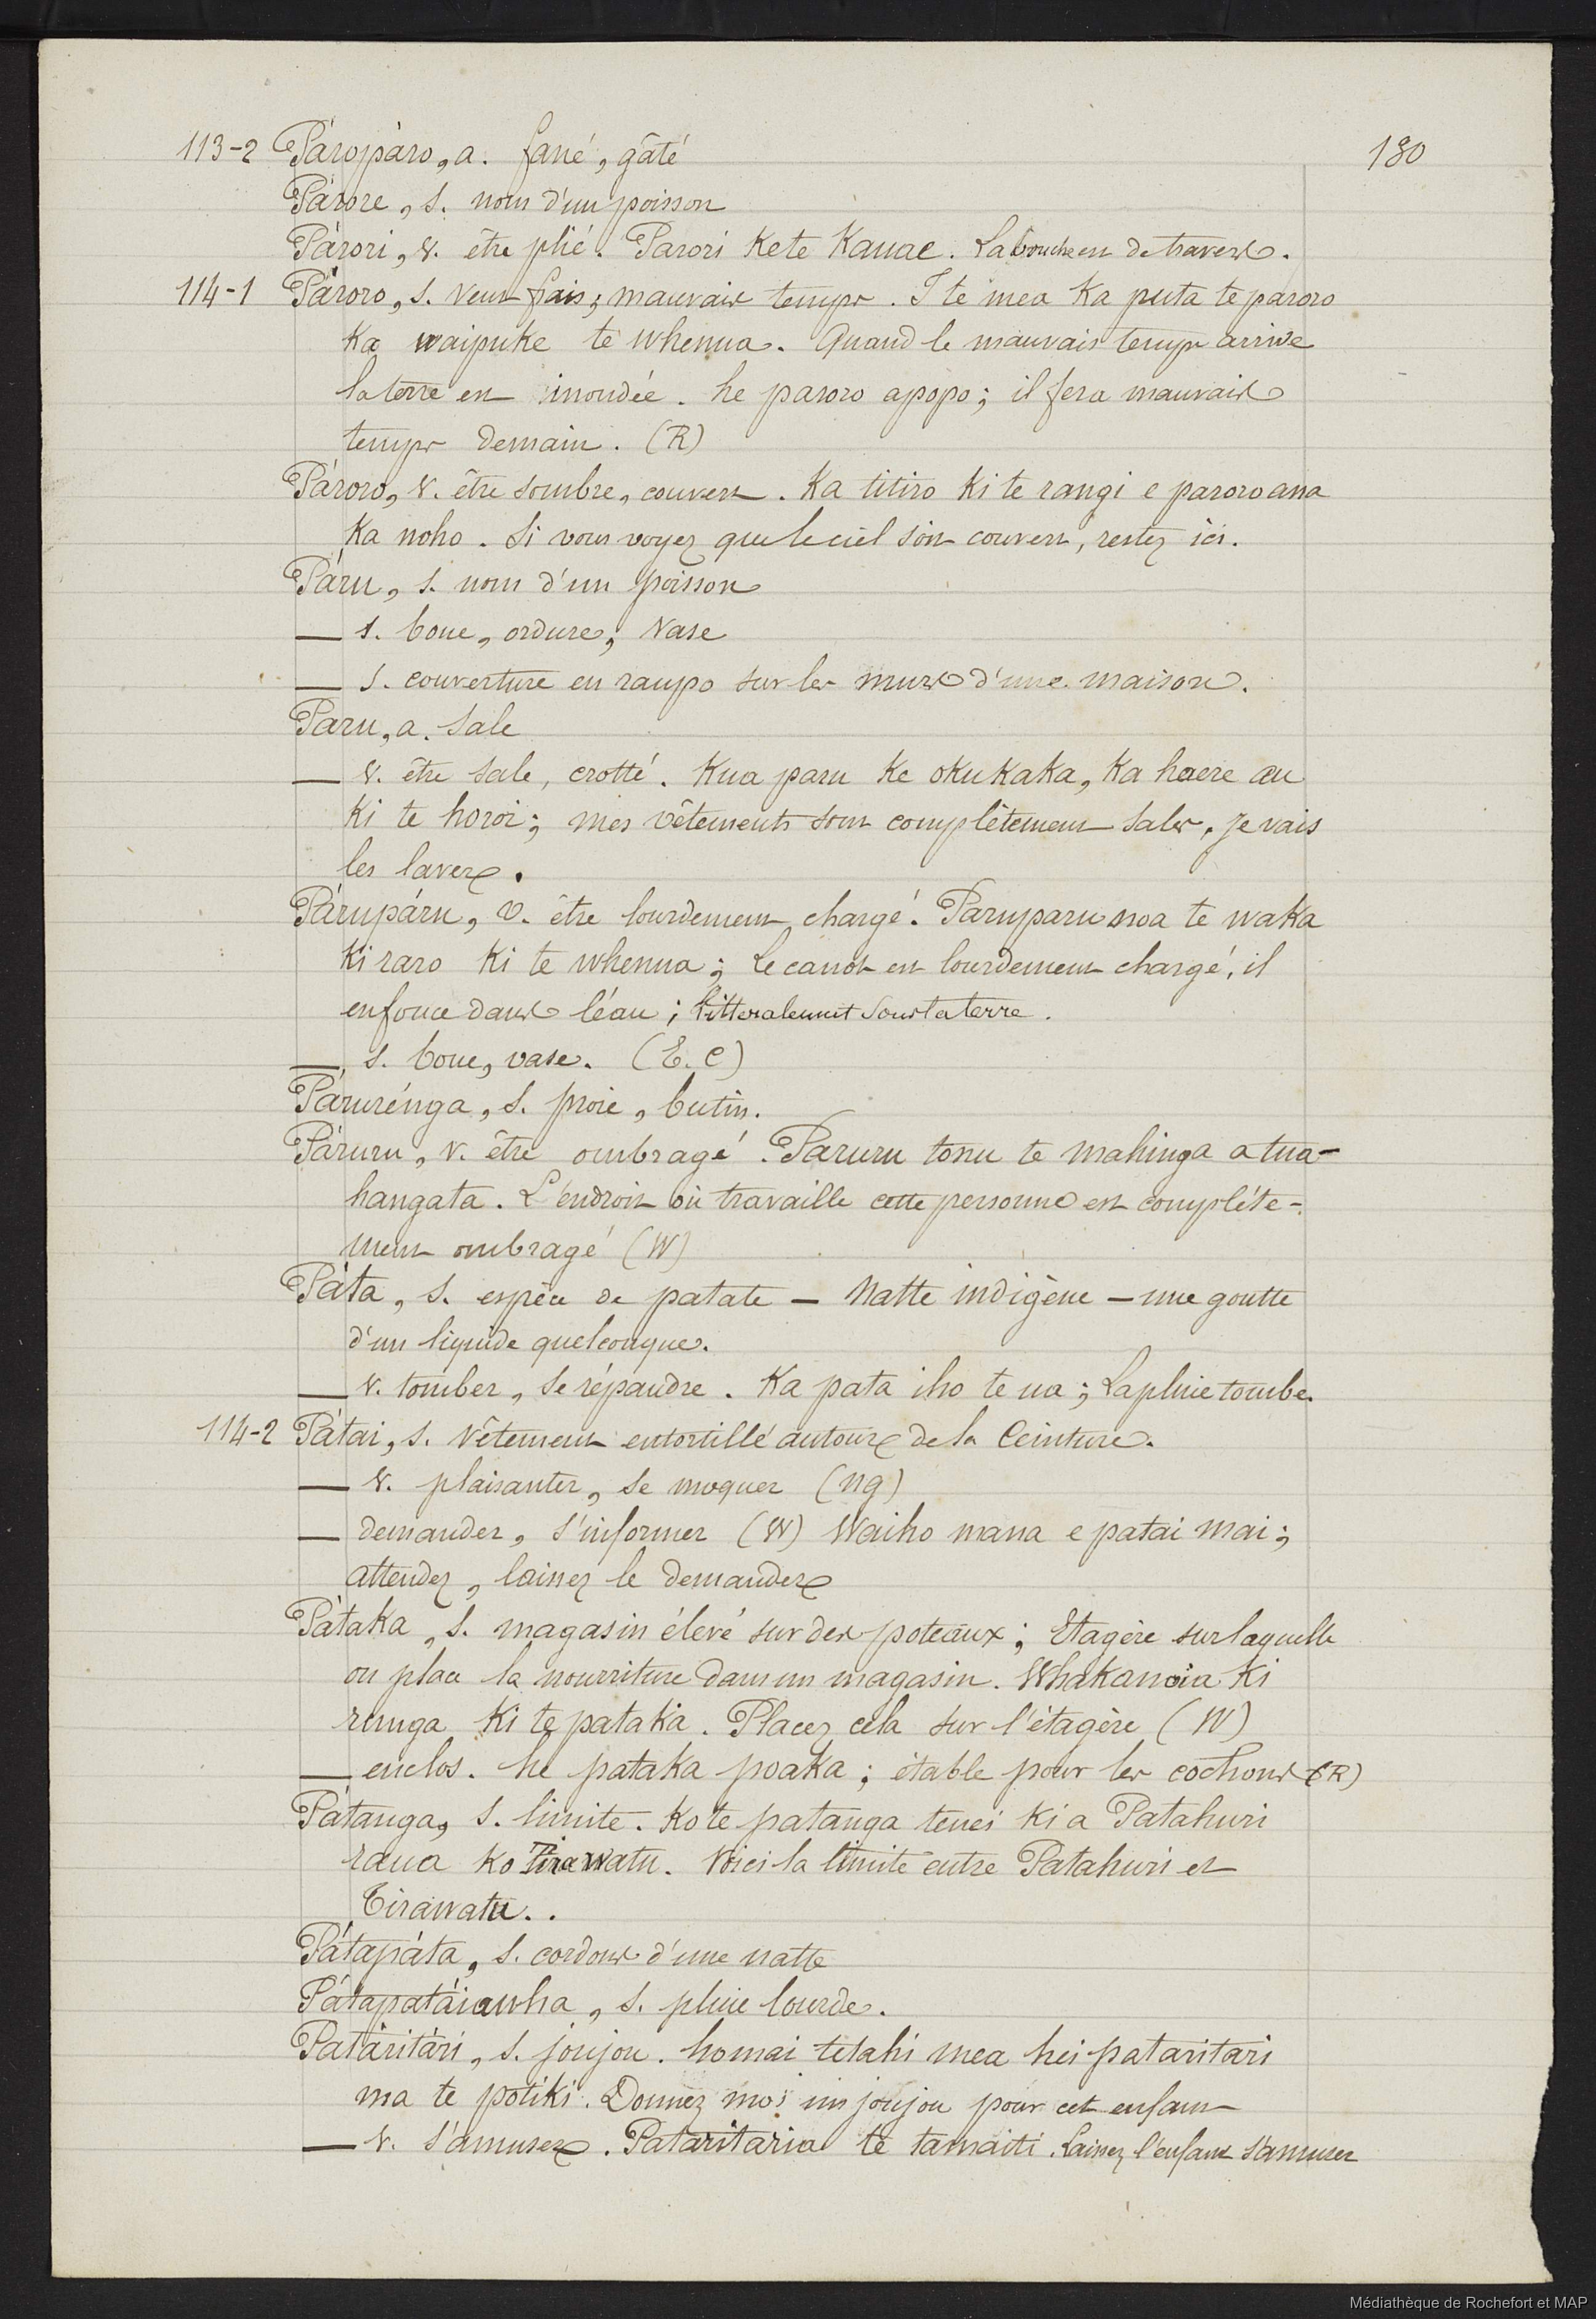 113-2 Páropáro, a. fané, gâté
180
Párore, s. nom d'un poisson
Párori, v. être plié. Parori ke te Kauae. La bouche est de travers.
114-1 Pároro, s. vent frais; mauvais temps. I te mea ka puta te paroro
Ka waipuke te whenua. Quand le mauvais temps arrive
la terre est inondée. he paroro apopo; il fera mauvais
temps demain. (R)
Pároro, v. être sombre, couvert. Ka titiro ki te rangi e paroro ana
ka noho. Si vous voyez que le ciel soit couvert, restez ici.
Páru, s. nom d'un poisson
— s. boue, ordure, vase
— s. couverture en raupo sur les murs d'une maison.
Paru, a. sale
— v. être sale, crotté. Kua paru ke oku kaka, ka haere au
ki te horoi; mes vêtements sont complètement sales, je vais
les laver.
Párupáru, v. être lourdement chargé. Paruparu noa te waka
ki raro ki te whenua; Le canot est lourdement chargé, il
enfonce dans l'éau; littéralement sous la terre.
— s. boue, vase. (E. C)
Páruru̇énga, s. proie, butin.
Páruru, v. être ombragé. Paruru tonu te mahinga a tua-
hangata. L'endroit où travaille cette personne est complète-
ment ombragé (W)
Páta, s. espèce de patate — Natte indigène — une goutte
d'un liquide quelconque.
— v. tomber, se répandre. Ka pata iho te ua; La pluie tombe.
114-2 Pátai, s. vêtement entortillé autour de la Ceinture.
— v. plaisanter, se moquer (ng)
— demander, s'informer (W) Waiho mana e patai mai;
attendez, laissez le demander
Pátaka, s. magasin élevé sur des poteaux; Etagère sur laquelle
on place la nourriture dans un magasin. Whakanoia ki
runga ki te pataka. Placez cela sur l'étagère (W)
— enclos. he pataka poaka; étable pour les cochons (R)
Pátanga, s. limite. Ko te patanga tenei ki a Patahuri
raua ko Tirawatu. Voici la limite entre Patahuri et
Tirawatu..
Pátapáta, s. cordons d'une natte
Pátapatáiawha, s. pluie lourde.
Patáritári, s. joujou. homai tetahi mea hei pataritari
ma te potiki. Donnez moi un joujou pour cet enfant
— v. s'amuser. Pataritaria te tamaiti. Laissez l'enfant s'amuser
Médiathèque de Rochefort et MAP